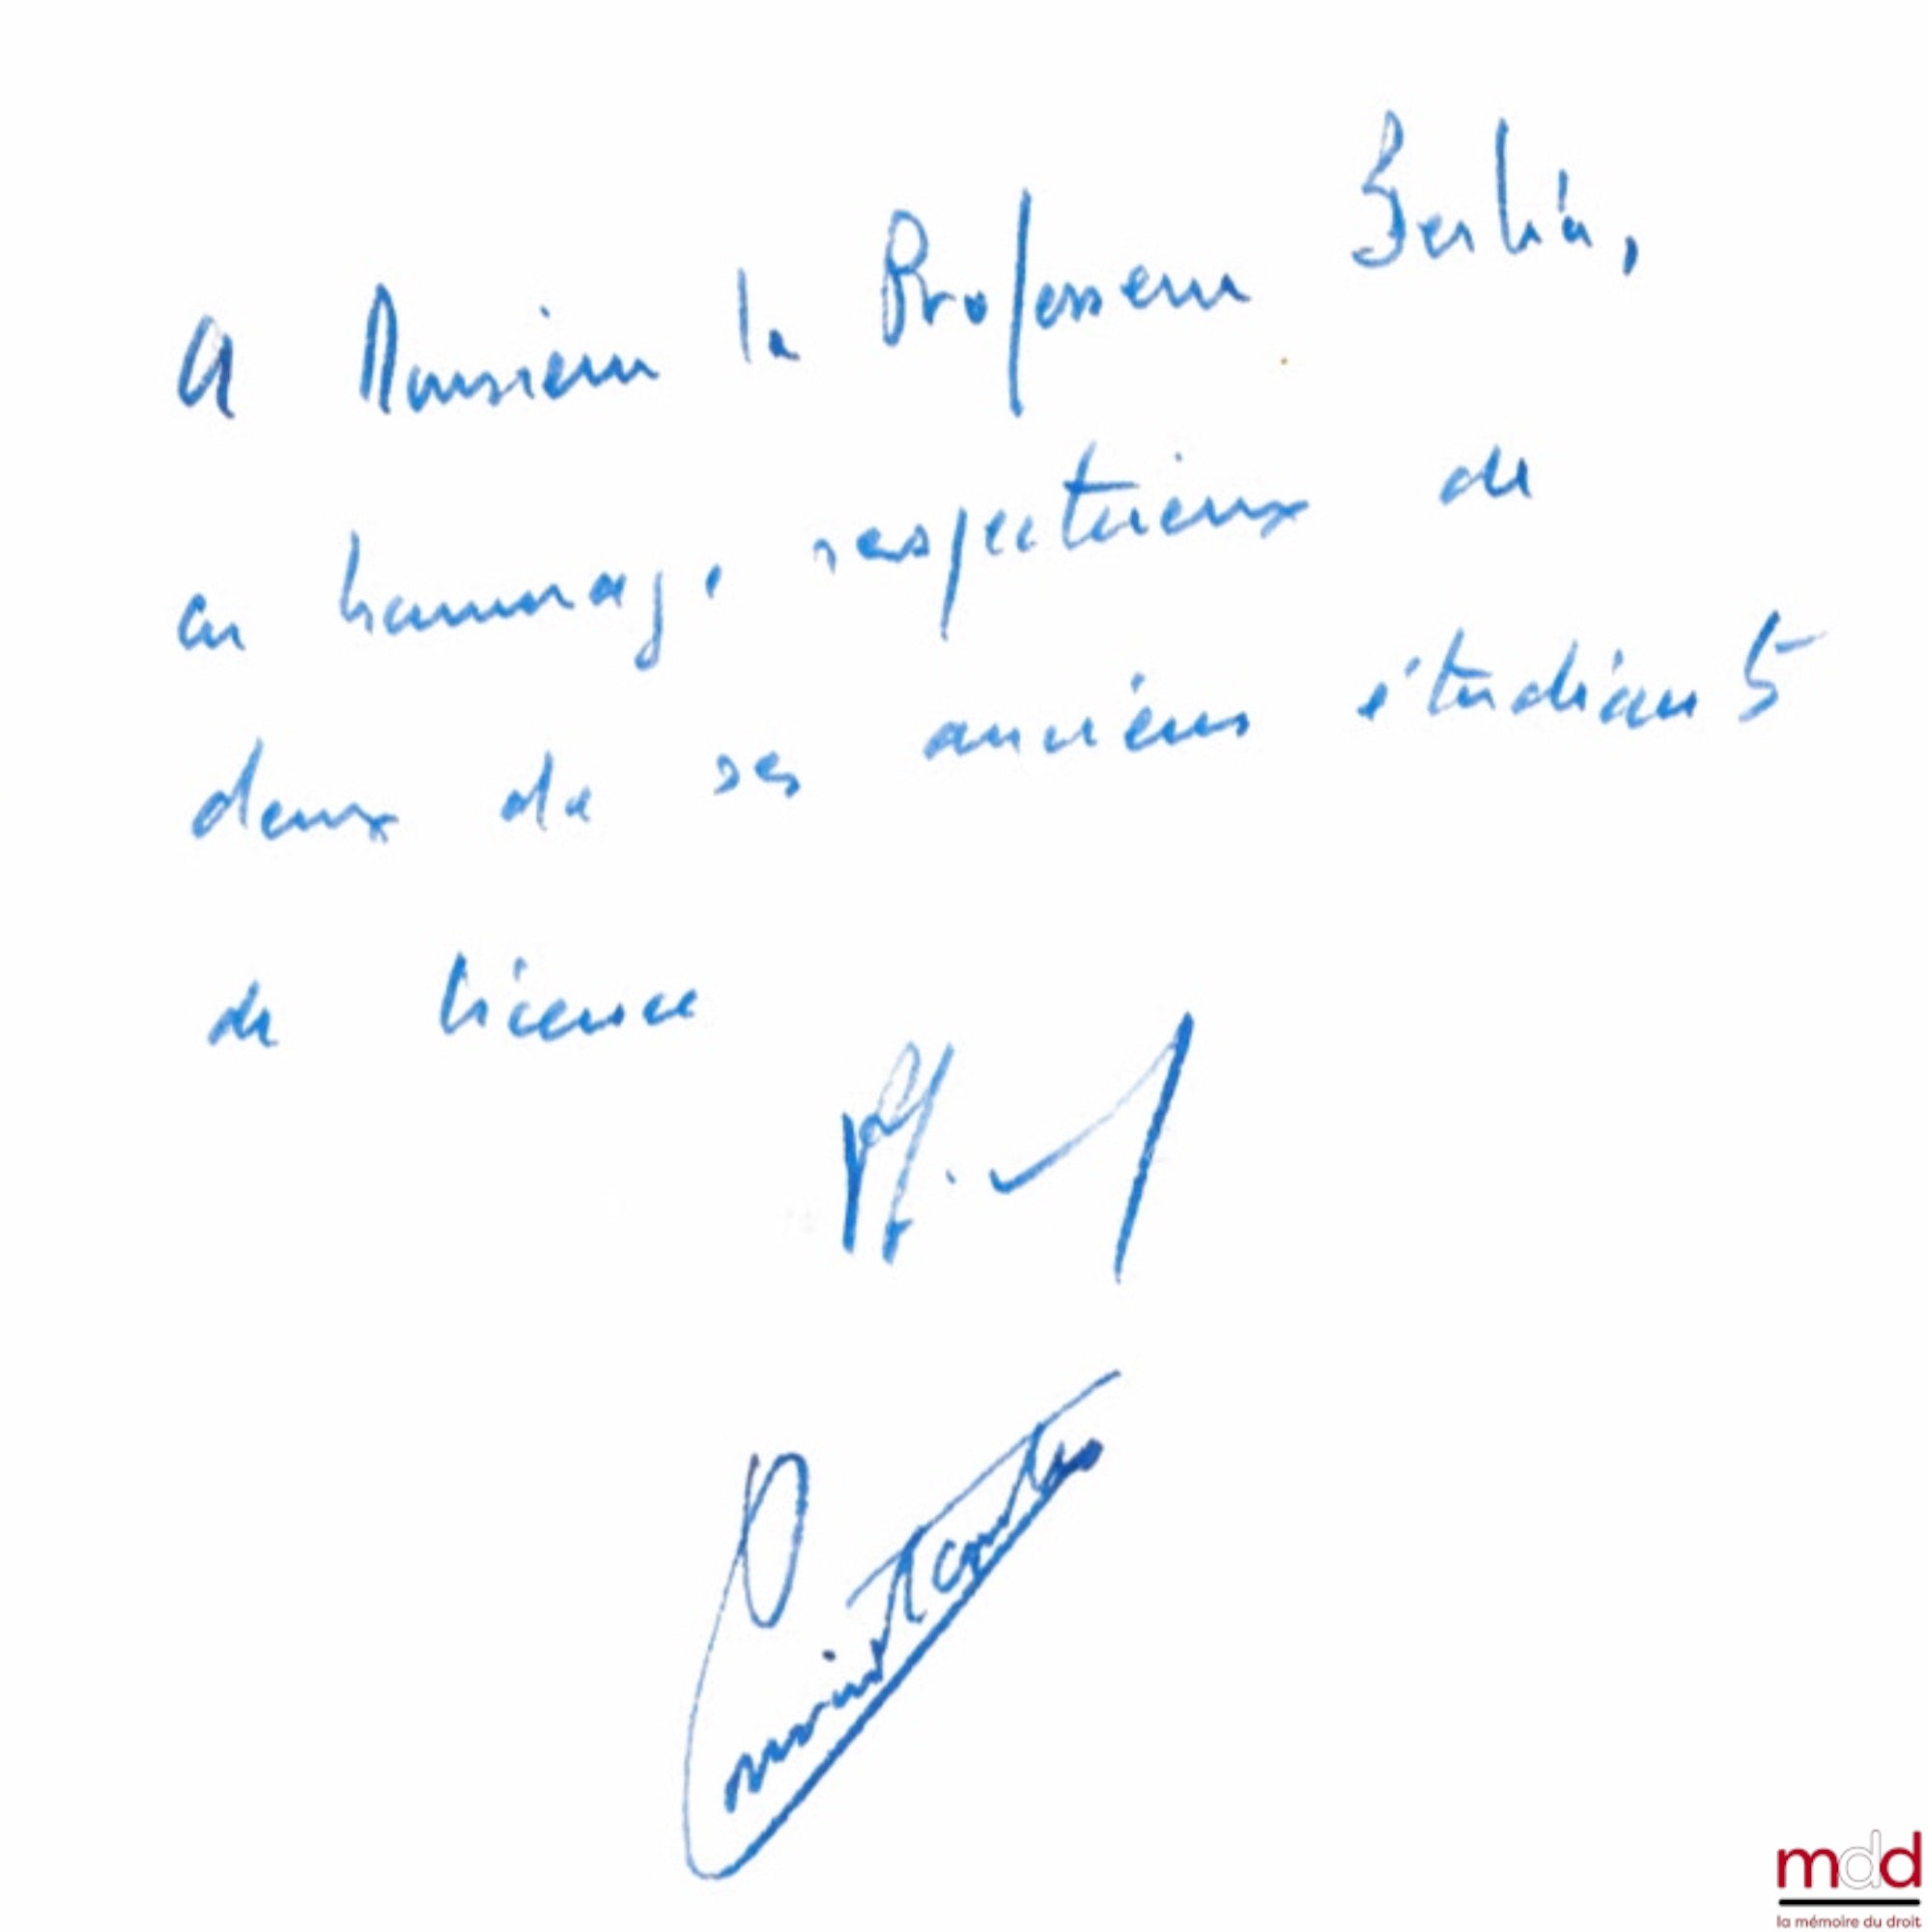 A Monsieur le Professeur Berlia,
en hommage respectueux de
deux de ses anciens étudiants
de licence
mdd
la mémoire du droit